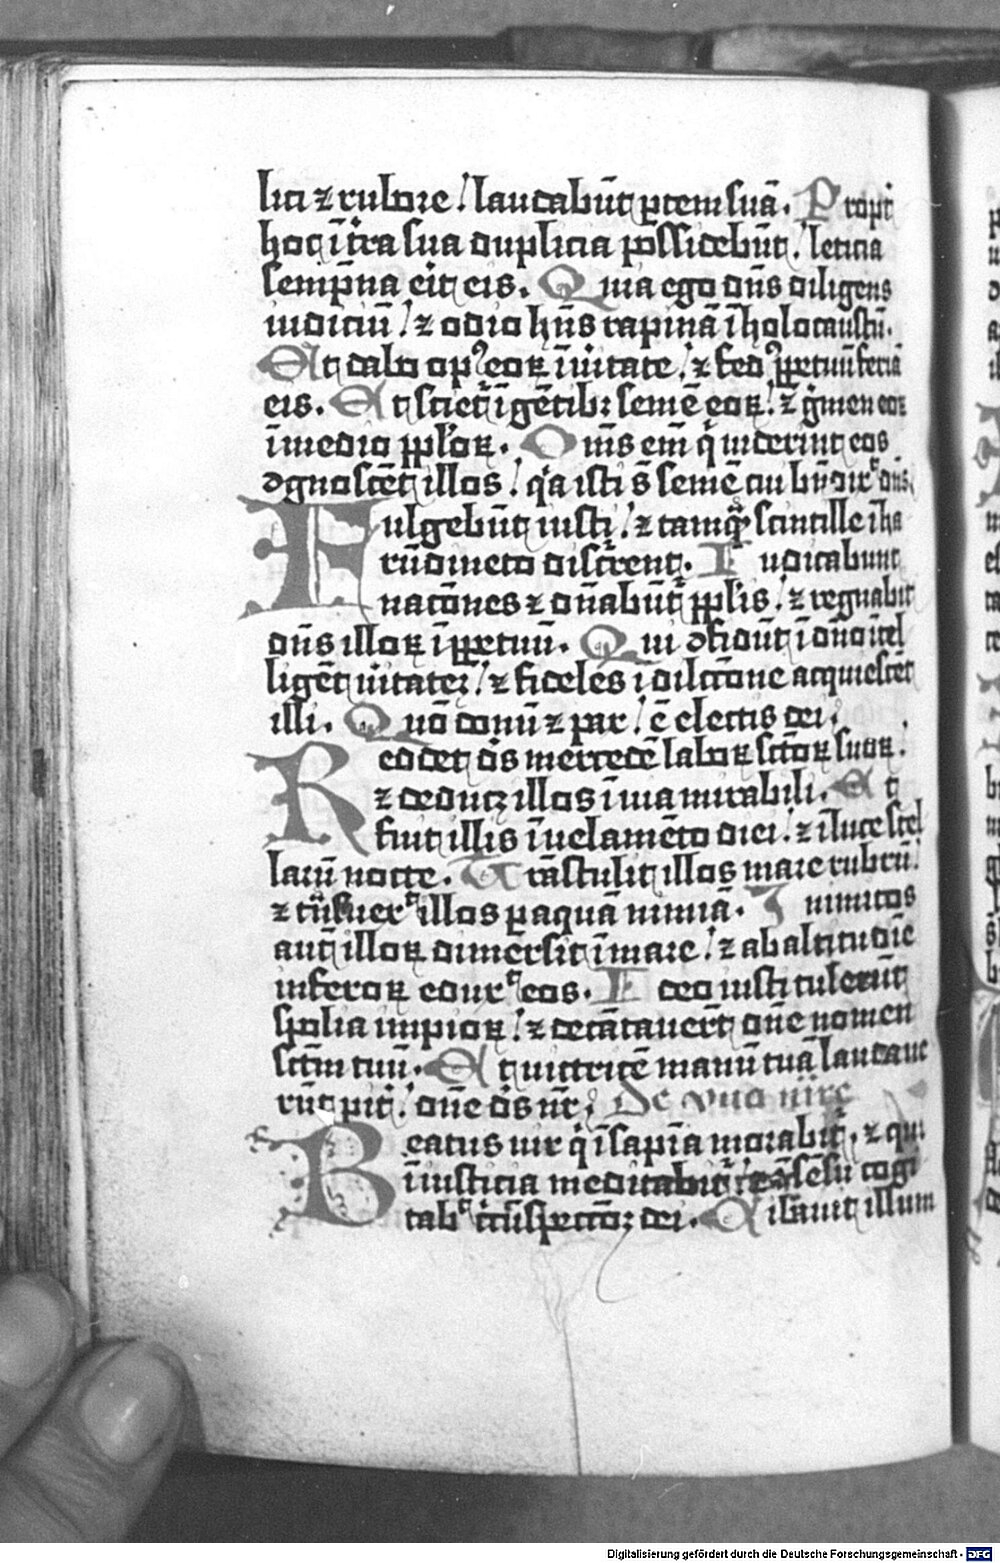 lici ⁊ rubore / laudabūt ptem suā. Propt
hoc ī tra sua duplicia possidebūt / leticia
sempn̄a erit eis. Quia ego dn̄s diligens
iudiciū / ⁊ odio hn̄s rapinā ī holocaustū.
Et dabo opꝰ eoꝝ ī ūitate / ⁊ fedꝰ ꝑpetuū feriā
eis. Et sciet̄ ī gētibꝫ semē eoꝝ / ⁊ gͥmen eoꝝ
ī medio ppl̓oꝝ. Om̄s em̄ qͥ viderint eos
ↄgnoscēt illos / qͥa isti s̄ semē cui bn̄dixꝰ dn̄s
Fulgebūt iusti / ⁊ tamqͣ scintille ī ha
rūdineto discͥrent. Iudicabunt
nacōnes ⁊ dn̄abūt̄ ppl̓is / ⁊ regnabit
dn̄s illoꝝ ī ꝑpetuū. Qui ↄfidūt ī dn̄o ītel
ligēt ūitateꝫ / ⁊ fideles ī dilcc̄one acquiescēt
illi. Quō donū ⁊ pax / ē electis dei.
Reddet ds̄ mercedē laboꝝ sctōꝝ suoꝝ /
⁊ deducꝫ illos ī via mirabili. Et
fuit illis ī uelamēto diei / ⁊ ī luce stel
larū nocte. Trāstulit illos mare rubrū /
⁊ tn̄suexꝰ illos ꝑ aquā nimiā. Inimicos
aut̄ illoꝝ dimersit ī mare / ⁊ ab altitudīe
inferoꝝ eduxꝰ eos. Ideo iusti tulerūt
spolia impioꝝ / ⁊ decātauerūt dn̄e nomen
sctm̄ tuū. Et uictricē manū tuā laudaue
rūt pit̄ / dn̄e ds̄ nr̄. De vno mr̄e
Beatus uir qͥ ī sapīa morabit̄ / ⁊ qui
ī iusticia meditabit̄ / ⁊ ī sēsu cogi
tabꝰ cͥcūspectōꝫ dei. Cibauit illum
Digitalisierung gefördert durch die Deutsche Forschungsgemeinschaft - DFG